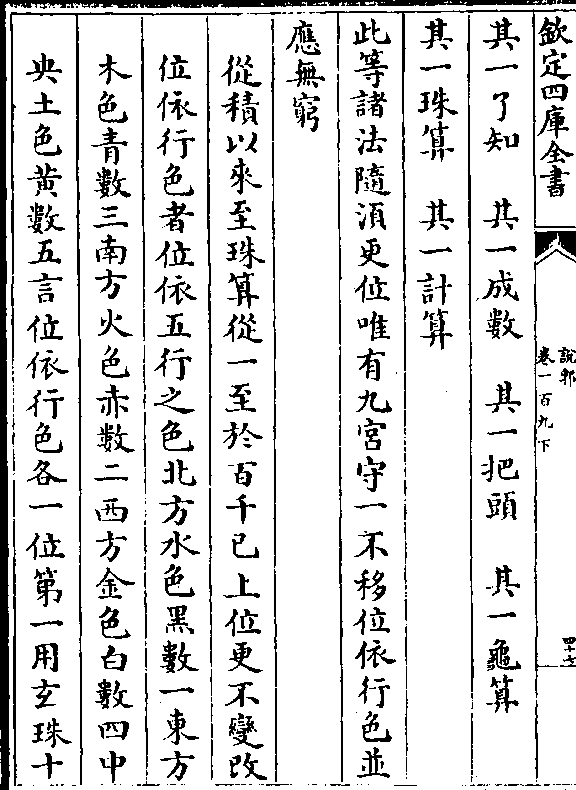 欽定四庫全書
說郛
卷一百九下
四十七
其一了知　其一成數　其一把頭　其一龜算
其一珠算　其一計算
此等諸法隨須更位唯有九宮守一不移位依行色並
應無窮
從積以來至珠算從一至於百千已上位更不變改
位依行色者位依五行之色北方水色黑數一東方
木色青數三南方火色赤數二西方金色白數四中
央土色黃數五言位依行色各一位第一用玄珠十